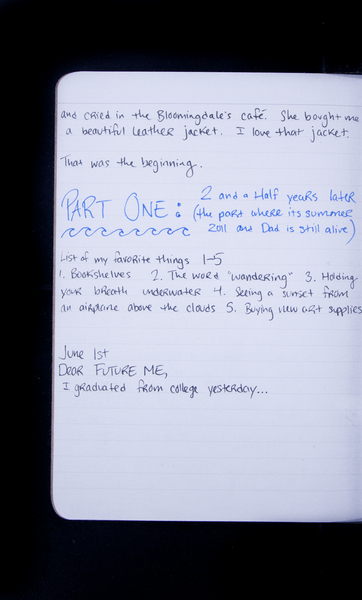 and cried in the Bloomingdale's café. She bought me
a beautiful leather jacket. I love that jacket.
That was the beginning.
PART ONE: 2 and a Half years later
(the part where its summer
2011 and Dad is still alive)
List of my favorite things 1-5
1. Bookshelves 2. The word "wandering" 3. Holding
your breath underwater 4. Seeing a sunset from
an airplane above the clouds 5. Buying new art supplies
June 1st
DEAR FUTURE ME,
I graduated from college yesterday...